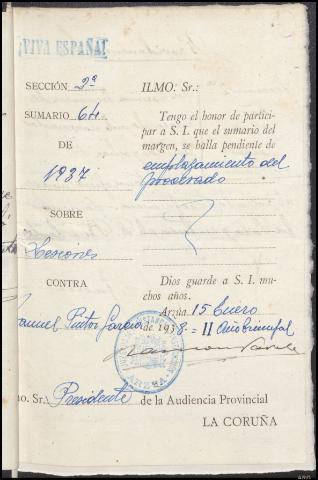 ¡VIVA ESPAÑA!
SECCIÓN 2ª
SUMARIO 64
DE
1937
SOBRE
Lesiones
CONTRA
Manuel Pintor García
ILMO. Sr.:
Tengo el honor de partici-
par a S. I. que el sumario del
margen, se halla pendiente de
emplazamiento del
procesado
Dios guarde a S. I. mu-
chos años.
Arzúa 15 Enero
de 1938.= II Año triunfal
mo. Sr. Presidente de la Audiencia Provincial
LA CORUÑA